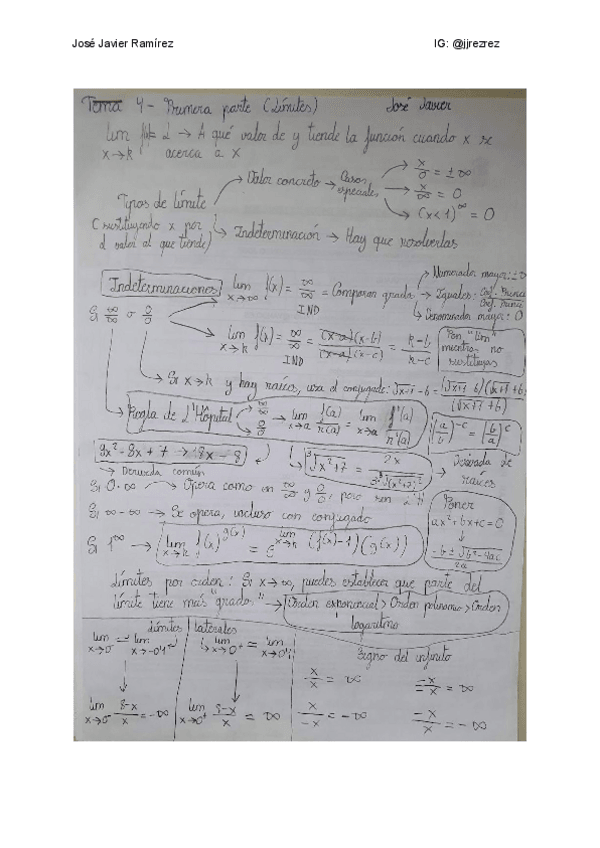 José Javier Ramírez IG: @jjrezrez
Tema 4 - Primera parte (Límites) José Javier
lim f(x) = L → A qué valor de y tiende la función cuando x se
x→k acerca a x
Tipos de límite
(sustituyendo x por
el valor al que tiende)
→ Valor concreto → Casos especiales
→ x/0 = ±∞
→ x/∞ = 0
→ (x<1)^∞ = 0
→ Indeterminación → Hay que resolverlas
Indeterminaciones
Si ∞/∞ o 0/0
lim x→∞ f(x) = ∞/∞ IND = Comparar grados
→ Numerador mayor: ±∞
→ Iguales:
→ Denominador mayor: 0
lim x→k f(x) = ∞/∞ IND = (x-a)(x-b)/(x-a)(x-c) = k-b/k-c
Pon "lim"
mientras no
sustituyas
→ Si x→k y hay raíces, usa el conjugado: √x+7 - 6 = (√x+7 - 6)(√x+7 + 6)/(√x+7 + 6)
→ Regla de L'Hôpital → ∞/∞ → 0/0 → lim x→a f(a)/h(a) = lim x→a f'(a)/h'(a)
(a/b)^-c = (b/a)^c
9x² - 8x + 7 → 18x - 8
→ Derivada común
³√x²+7 = 2x/3·³√(x²+7)²
→ Derivada de
raíces
Si 0·∞ → Opera como en ∞/∞ y 0/0, pero sin L'H
Si ∞-∞ → Se opera, incluso con conjugado
Poner
ax²+bx+c=0
↓
-b ± √b²-4ac / 2a
Si 1^∞ → lim x→k f(x)^g(x) = e^lim x→k (f(x)-1)(g(x))
Límites por orden: Si x→∞, puedes establecer que parte del
límite tiene más "grado." → Orden exponencial > Orden polinomio > Orden
logaritmo
Límites laterales
lim x→0⁻ = lim x→-0'1
lim x→0⁺ = lim x→0'1
lim x→0⁻ 8-x/x = -∞
lim x→0⁺ 8-x/x = ∞
Signo del infinito
x/x = ∞
-x/-x = ∞
x/-x = -∞
-x/x = -∞